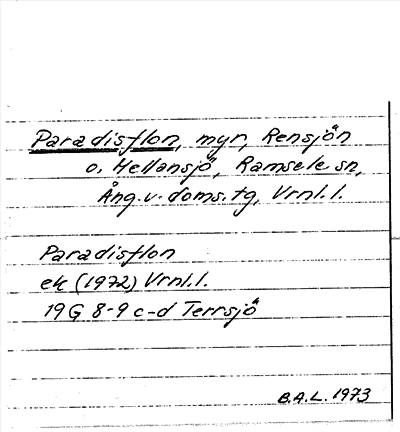 Paradisflon, myr, Rensjön
o. Hellansjö, Ramsele sn,
Ång. v. doms. tg, Vrnl. l.
Paradisflon
ek (1972) Vrnl. l.
19 G 8-9 c-d Terrsjö
B.A.L. 1973